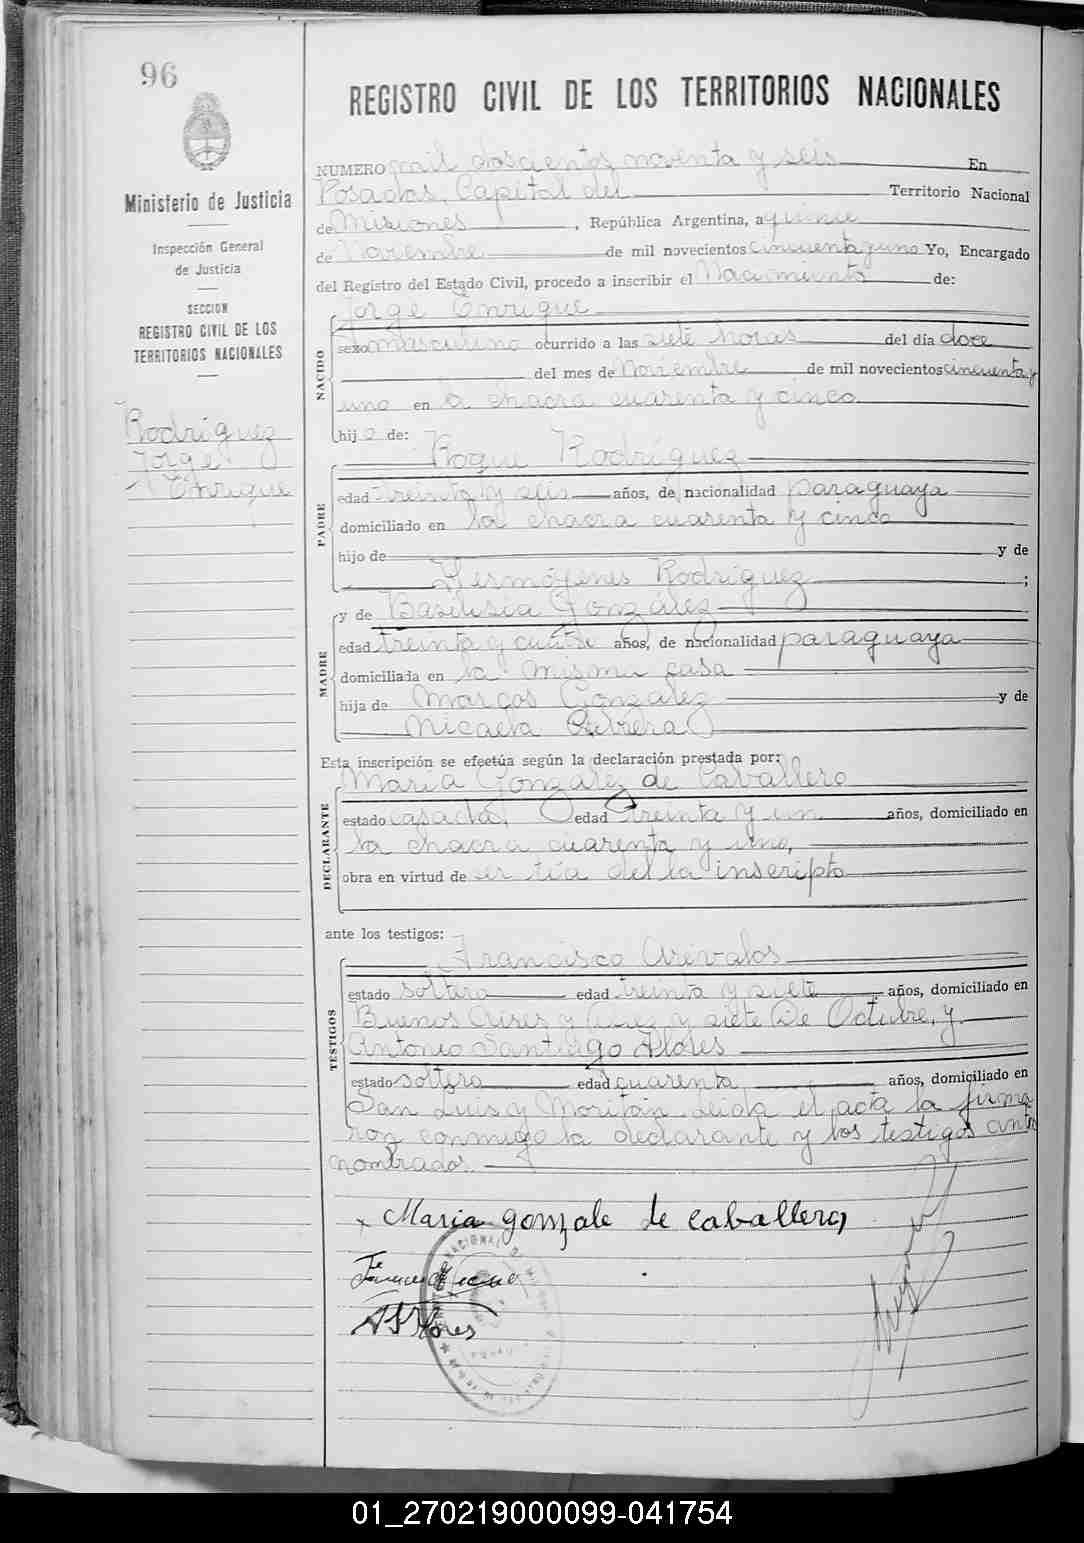 96
REGISTRO CIVIL DE LOS TERRITORIOS NACIONALES
Ministerio de Justicia
Inspección General
de Justicia
SECCION
REGISTRO CIVIL DE LOS
TERRITORIOS NACIONALES
Rodríguez
Jorge
Enrique
NUMERO mil doscientos noventa y seis En
Posadas, Capital del Territorio Nacional
de Misiones, República Argentina, a quince
de Noviembre de mil novecientos cincuenta y uno Yo, Encargado
del Registro del Estado Civil, procedo a inscribir el Nacimiento de:
Jorge Enrique
NACIDO
sexo masculino ocurrido a las siete horas del día doce
del mes de Noviembre de mil novecientos cincuenta y
uno en la chacra cuarenta y cinco
hijo de:
Roque Rodríguez
PADRE
edad treinta y seis años, de nacionalidad paraguaya
domiciliado en la chacra cuarenta y cinco
hijo de y de
Hermógenes Rodríguez ;
y de Basilisia González
MADRE
edad treinta y años, de nacionalidad paraguaya
domiciliada en la misma casa
hija de Marcos González y de
Micaela Cabrera
Esta inscripción se efectúa según la declaración prestada por:
María González de Caballero
DECLARANTE
estado casada, edad treinta y un años, domiciliado en
la chacra cuarenta y uno,
obra en virtud de ser tía del la inscripto
ante los testigos:
Francisco Arévalos
TESTIGOS
estado soltero edad treinta y siete años, domiciliado en
Buenos Aires y Diez y siete De Octubre, y
Antonio Santiago Flores
estado soltero edad cuarenta años, domiciliado en
San Luis y Moritán Leída el acta la firma
ron conmigo la declarante y los testigos ante
nombrados.
x Maria gonzale de caballero
A S Flores
01_270219000099-041754